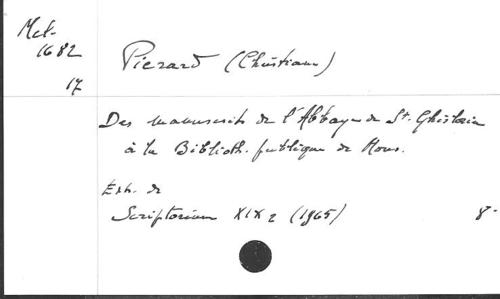 Mel.
1682
17
Pierard (Christiane)
Des manuscrits de l'Abbaye de St. Ghislain
à la Biblioth. publique de Mons.
Extr. de
Scriptorium XIX 2 (1965) 8°